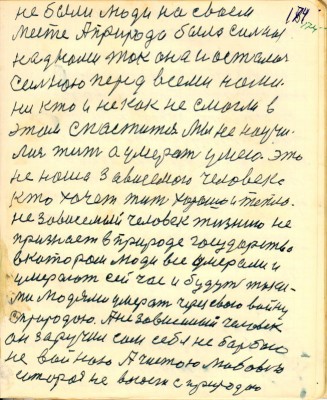 не были люди на своем
184
месте А природа была сильна
над ними так она и осталас
сильною перед всеми нами.
ни кто и не как не смогли в
этом спастится Мы не научи-
лис жит а умерат умеем. это
не наша зависемого человека
кто хочет жит хорошо и тепло.
независемый человек жизнию не
признает в природе государство
в котором люди все умерали и
умерают сейчас и будут таки-
ми людями умерат чериз свою войну
с природою. А независемый человек
он заручил сам себя не борбою
не войною А чистою любовью
которая не воюет с природою